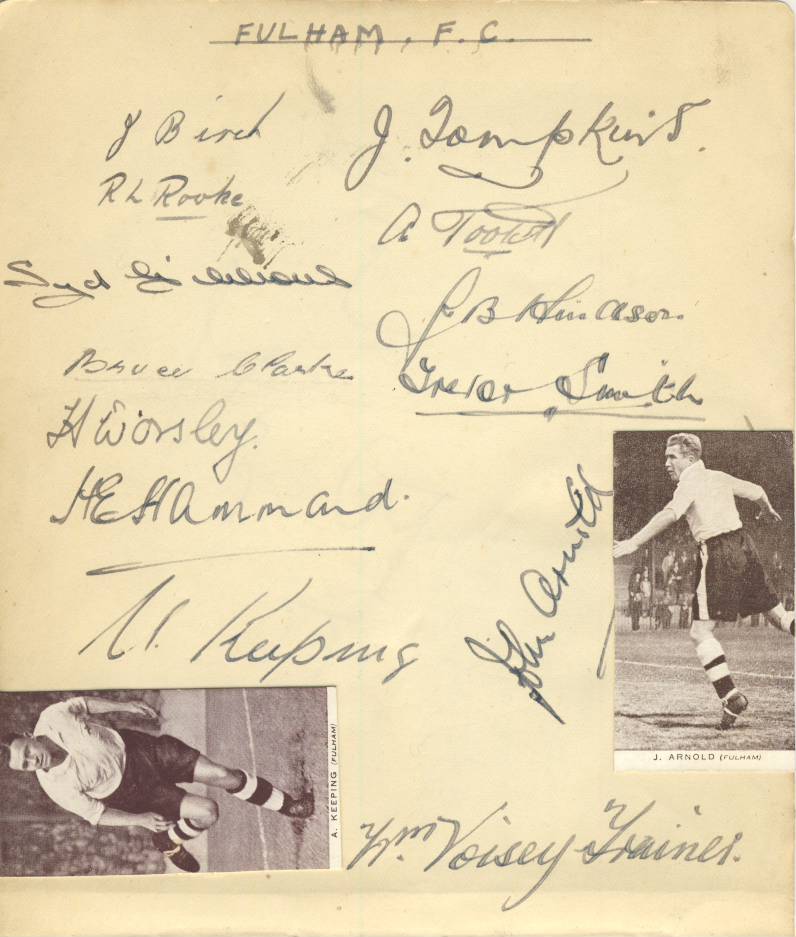 FULHAM, F.C.
J Birch
J. Tompkins.
R L Rooke
A Tootill
Syd
J B Hindson
Bruce Clarke
Trevor Smith
H Worsley.
H E Hammond.
John Arnold
Keeping
J. ARNOLD (FULHAM)
A. KEEPING (FULHAM)
Wm Voisey Trainer.